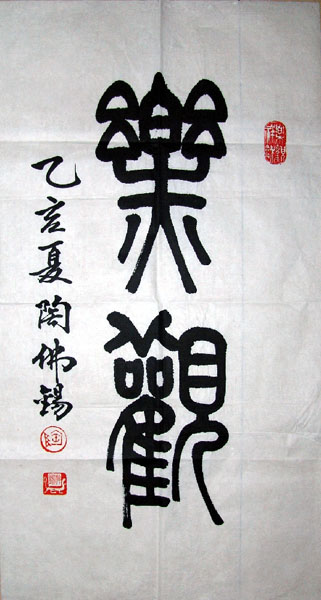 樂觀
乙亥夏陶佛錫